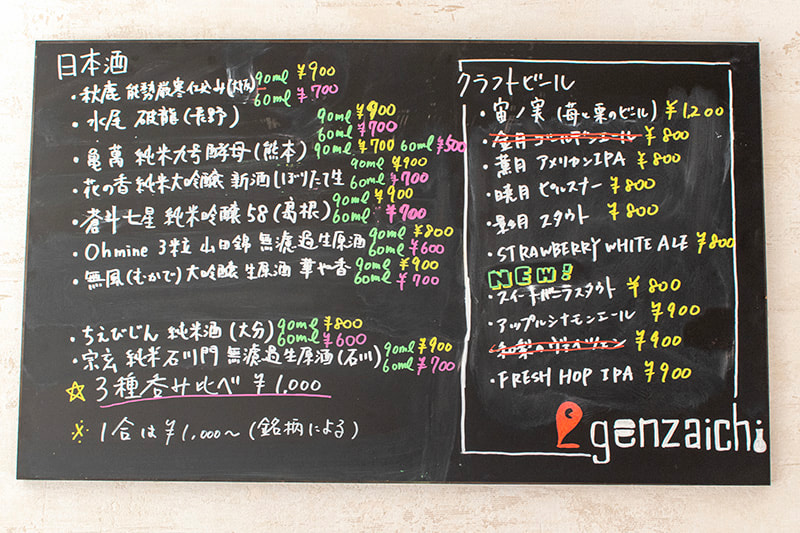 日本酒
・秋鹿 能勢厳寒仕込み(大阪) 90ml ¥900
60ml ¥700
・水尾 破龍(長野) 90ml ¥900
60ml ¥700
・亀萬 純米九号酵母(熊本) 90ml ¥700 60ml ¥500
・花の香 純米大吟醸 新酒しぼりたて生 90ml ¥900
60ml ¥700
・蒼斗七星 純米吟醸 58(島根) 90ml ¥900
60ml ¥700
・Ohmine 3粒 山田錦 無濾過生原酒 90ml ¥800
60ml ¥600
・無風(むかで)大吟醸 生原酒 華や香 90ml ¥900
60ml ¥700
・ちえびじん 純米酒(大分) 90ml ¥800
60ml ¥600
・宗玄 純米石川門 無濾過生原酒(石川) 90ml ¥900
60ml ¥700
☆3種呑み比べ ¥1,000
※1合は¥1,000〜(銘柄による)
クラフトビール
・宙ノ実(苺と栗のビール) ¥1,200
・金月 ゴールデンエール ¥800
・薫月 アメリカンIPA ¥800
・暁月 ピルスナー ¥800
・影月 スタウト ¥800
・STRAWBERRY WHITE ALE ¥800
NEW!
・スイートバニラスタウト ¥800
・アップルシナモンエール ¥900
・和梨のヴァイツェン ¥900
・FRESH HOP IPA ¥900
genzaichi